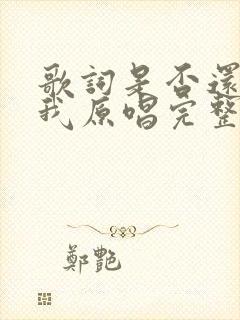 歌詞是否還
我原唱完整
鄭艷